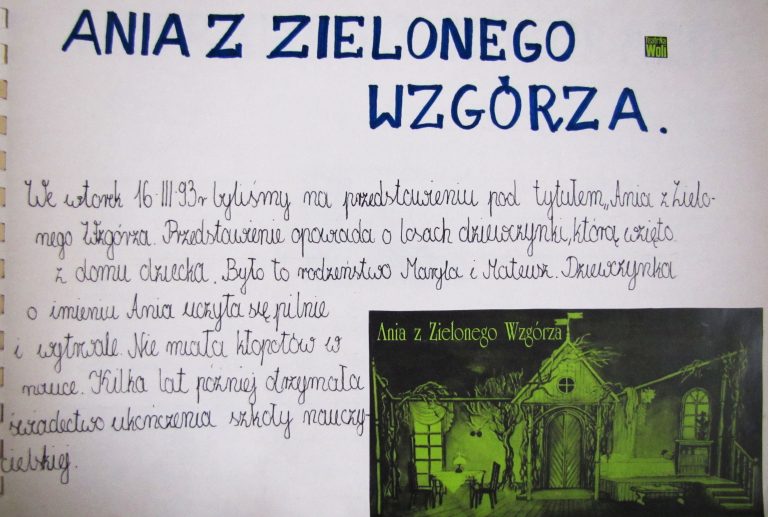 ANIA Z ZIELONEGO
WZGÓRZA.
Teatr Na
Woli
We wtorek 16 III 93r byliśmy na przedstawieniu pod tytułem „Ania z Zielo-
nego Wzgórza. Przedstawienie opowiada o losach dziewczynki, którą wzięto
z domu dziecka. Było to rodzeństwo Maryla i Mateusz. Dziewczynka
o imieniu Ania uczyła się pilnie
i wytrwale. Nie miała kłopotów w
nauce. Kilka lat później otrzymała
świadectwo ukończenia szkoły nauczy-
cielskiej.
Ania z Zielonego Wzgórza